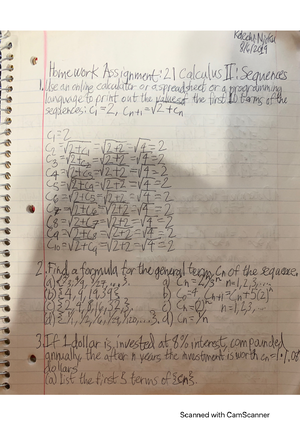 8/6/2019
Homework Assignment: 21 Calculus II: Sequences
1. Use an online calculator or a spreadsheet or a programming
language to print out the values of the first 10 terms of the
sequences: C₁=2, Cₙ₊₁=√2+Cₙ
C₁=2
C₂=√2+C₁=√2+2=√4=2
C₃=√2+C₂=√2+2=√4=2
C₄=√2+C₃=√2+2=√4=2
C₅=√2+C₄=√2+2=√4=2
C₆=√2+C₅=√2+2=√4=2
C₇=√2+C₆=√2+2=√4=2
C₈=√2+C₇=√2+2=√4=2
C₉=√2+C₈=√2+2=√4=2
C₁₀=√2+C₉=√2+2=√4=2
2. Find a formula for the general term Cₙ of the sequence.
(a)
(b)
n=1,2,3,...
3. If 1 dollar is invested at 8% interest, compounded
annually, the after n years the investment is worth cₙ=1·1.08ⁿ
dollars
(a) List the first 5 terms of {cₙ}.
Scanned with CamScanner